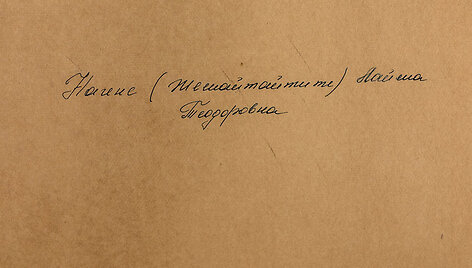 Нагенс (Жемайтайтите) Лайма
Теодоровна